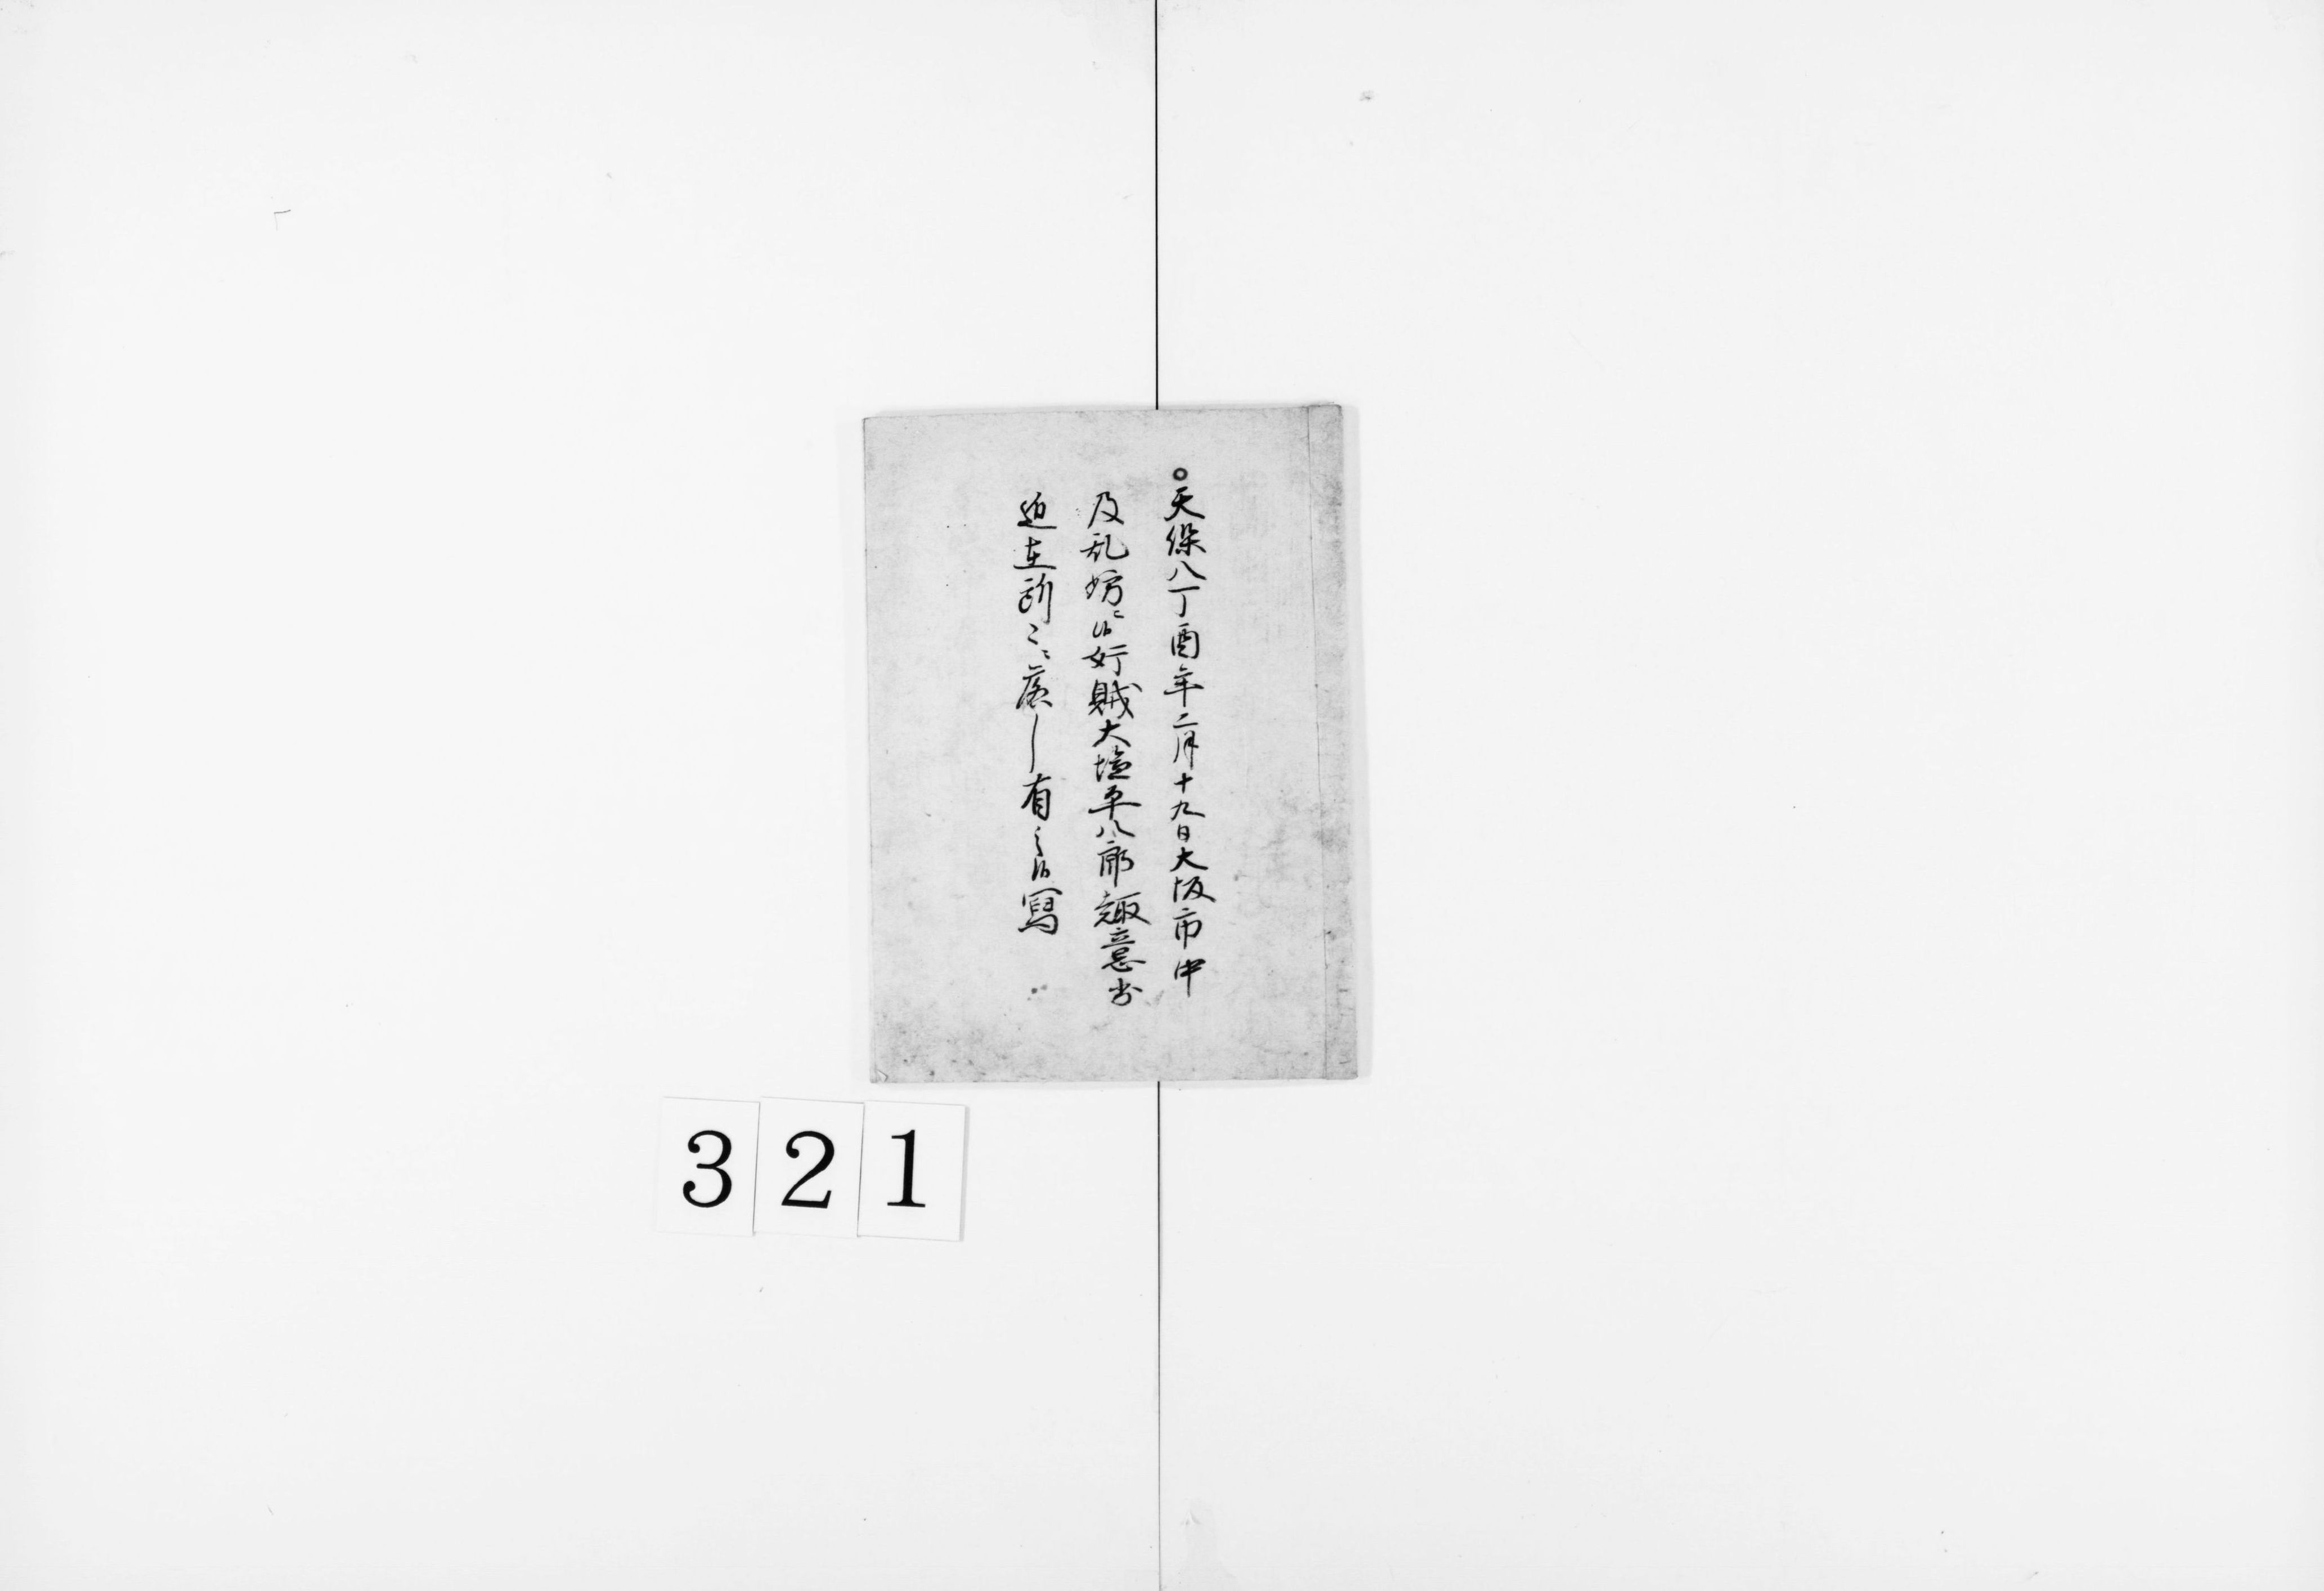 ○天保八丁酉年二月十九日大坂市中
及乱妨ニ候奸賊大塩平八郎趣意書
近在所々ニ落し有之候写
321